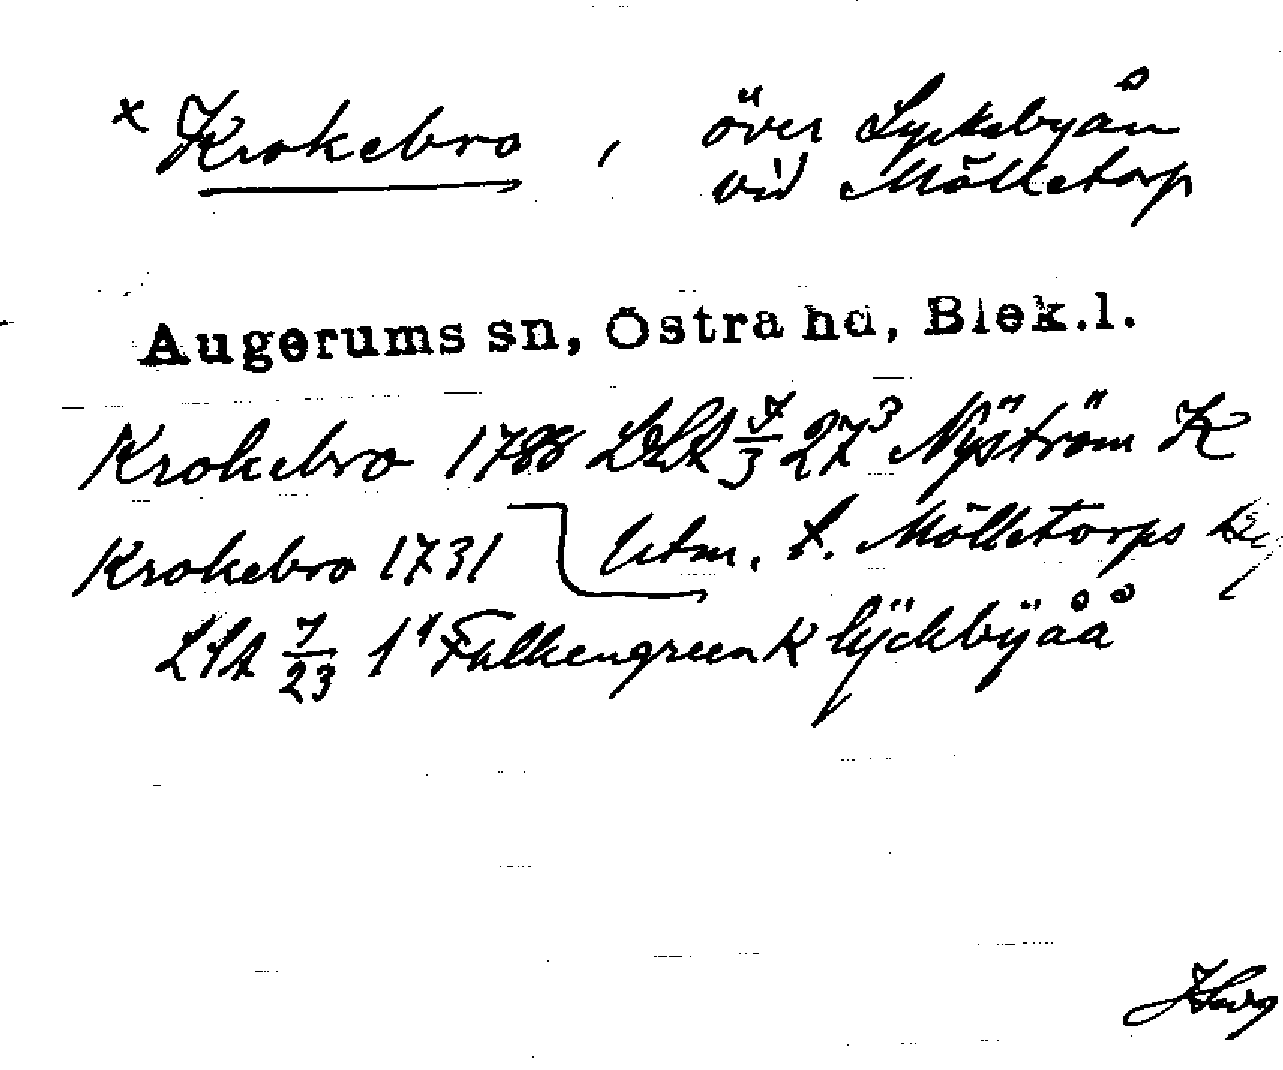 x Krokebro, över Lyckebyån
vid Mölletorp
Augerums sn, Östra hd, Blek.l.
Krokebro 1788 LSA 7/3 27³ Nyström K
Krokebro 1731 Utm. t. Mölletorps
LSA 7/23 1⁴ Falkengreen K lÿckbÿåå